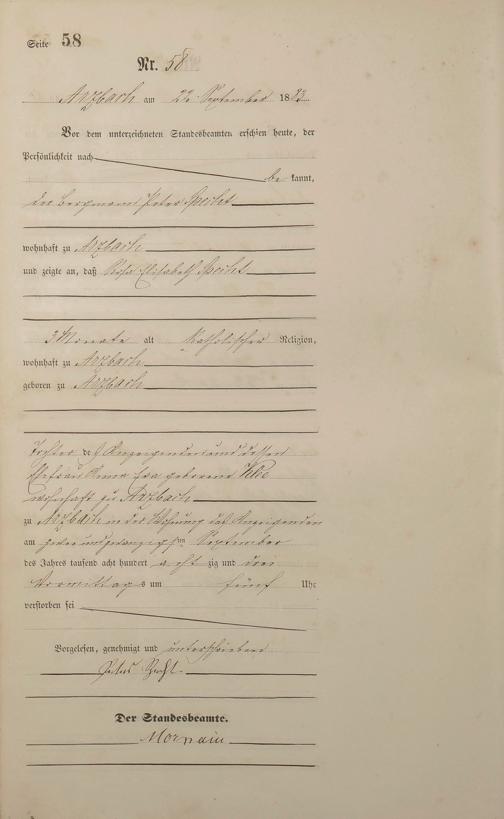 Seite 58
Nr. 58
Arzbach am 22. September 1883
Vor dem unterzeichneten Standesbeamten erschien heute, der
Persönlichkeit nach
be kannt,
der Bergmann Peter Specht
wohnhaft zu Arzbach
und zeigte an, daß Rosa Elisabeth Specht
3 Monate alt katholischer Religion,
wohnhaft zu Arzbach
geboren zu Arzbach
Tochter des Anzeigenden und dessen
Ehefrau Anna Eva geborene Klee
wohnhaft zu Arzbach
zu Arzbach in der Wohnung des Anzeigenden
am zwei und zwanzigsten September
des Jahres tausend acht hundert acht zig und drei
Vormittag s um fünf Uhr
verstorben sei
Vorgelesen, genehmigt und unterschrieben
Peter Specht
Der Standesbeamte.